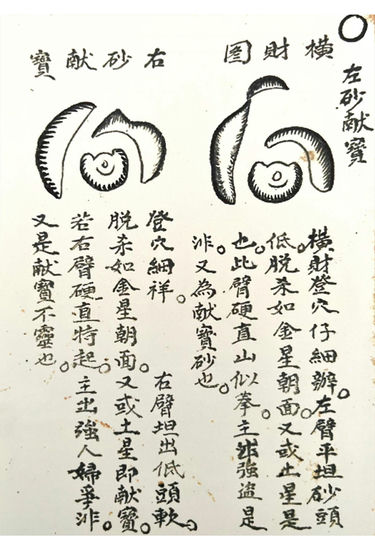 左砂献寳
横財图
横財登穴仔細辦。左臂平坦砂頭
低。脫杀如金星朝面。又或土星是
也。此臂硬直山似拳。主非強盜是
非又為献寳砂也。
右砂献寳
登穴細祥。右臂坦出低頭軟。
脫杀如金星朝面。又或土星即献寳。
若右臂硬直特起。主出強人婦爭非。
又是献寳不靈也。